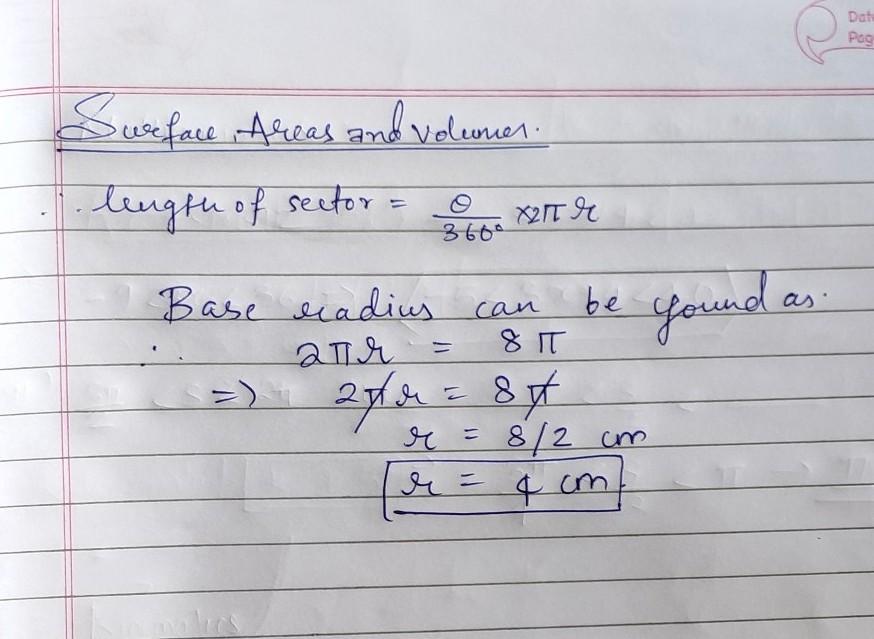 Date
Pag
Surface Areas and volumes.
∴ length of sector = θ/360° ×2π r
Base radius can be found as.
∴ 2πr = 8π
=> 2πr = 8π
r = 8/2 cm
r = 4 cm